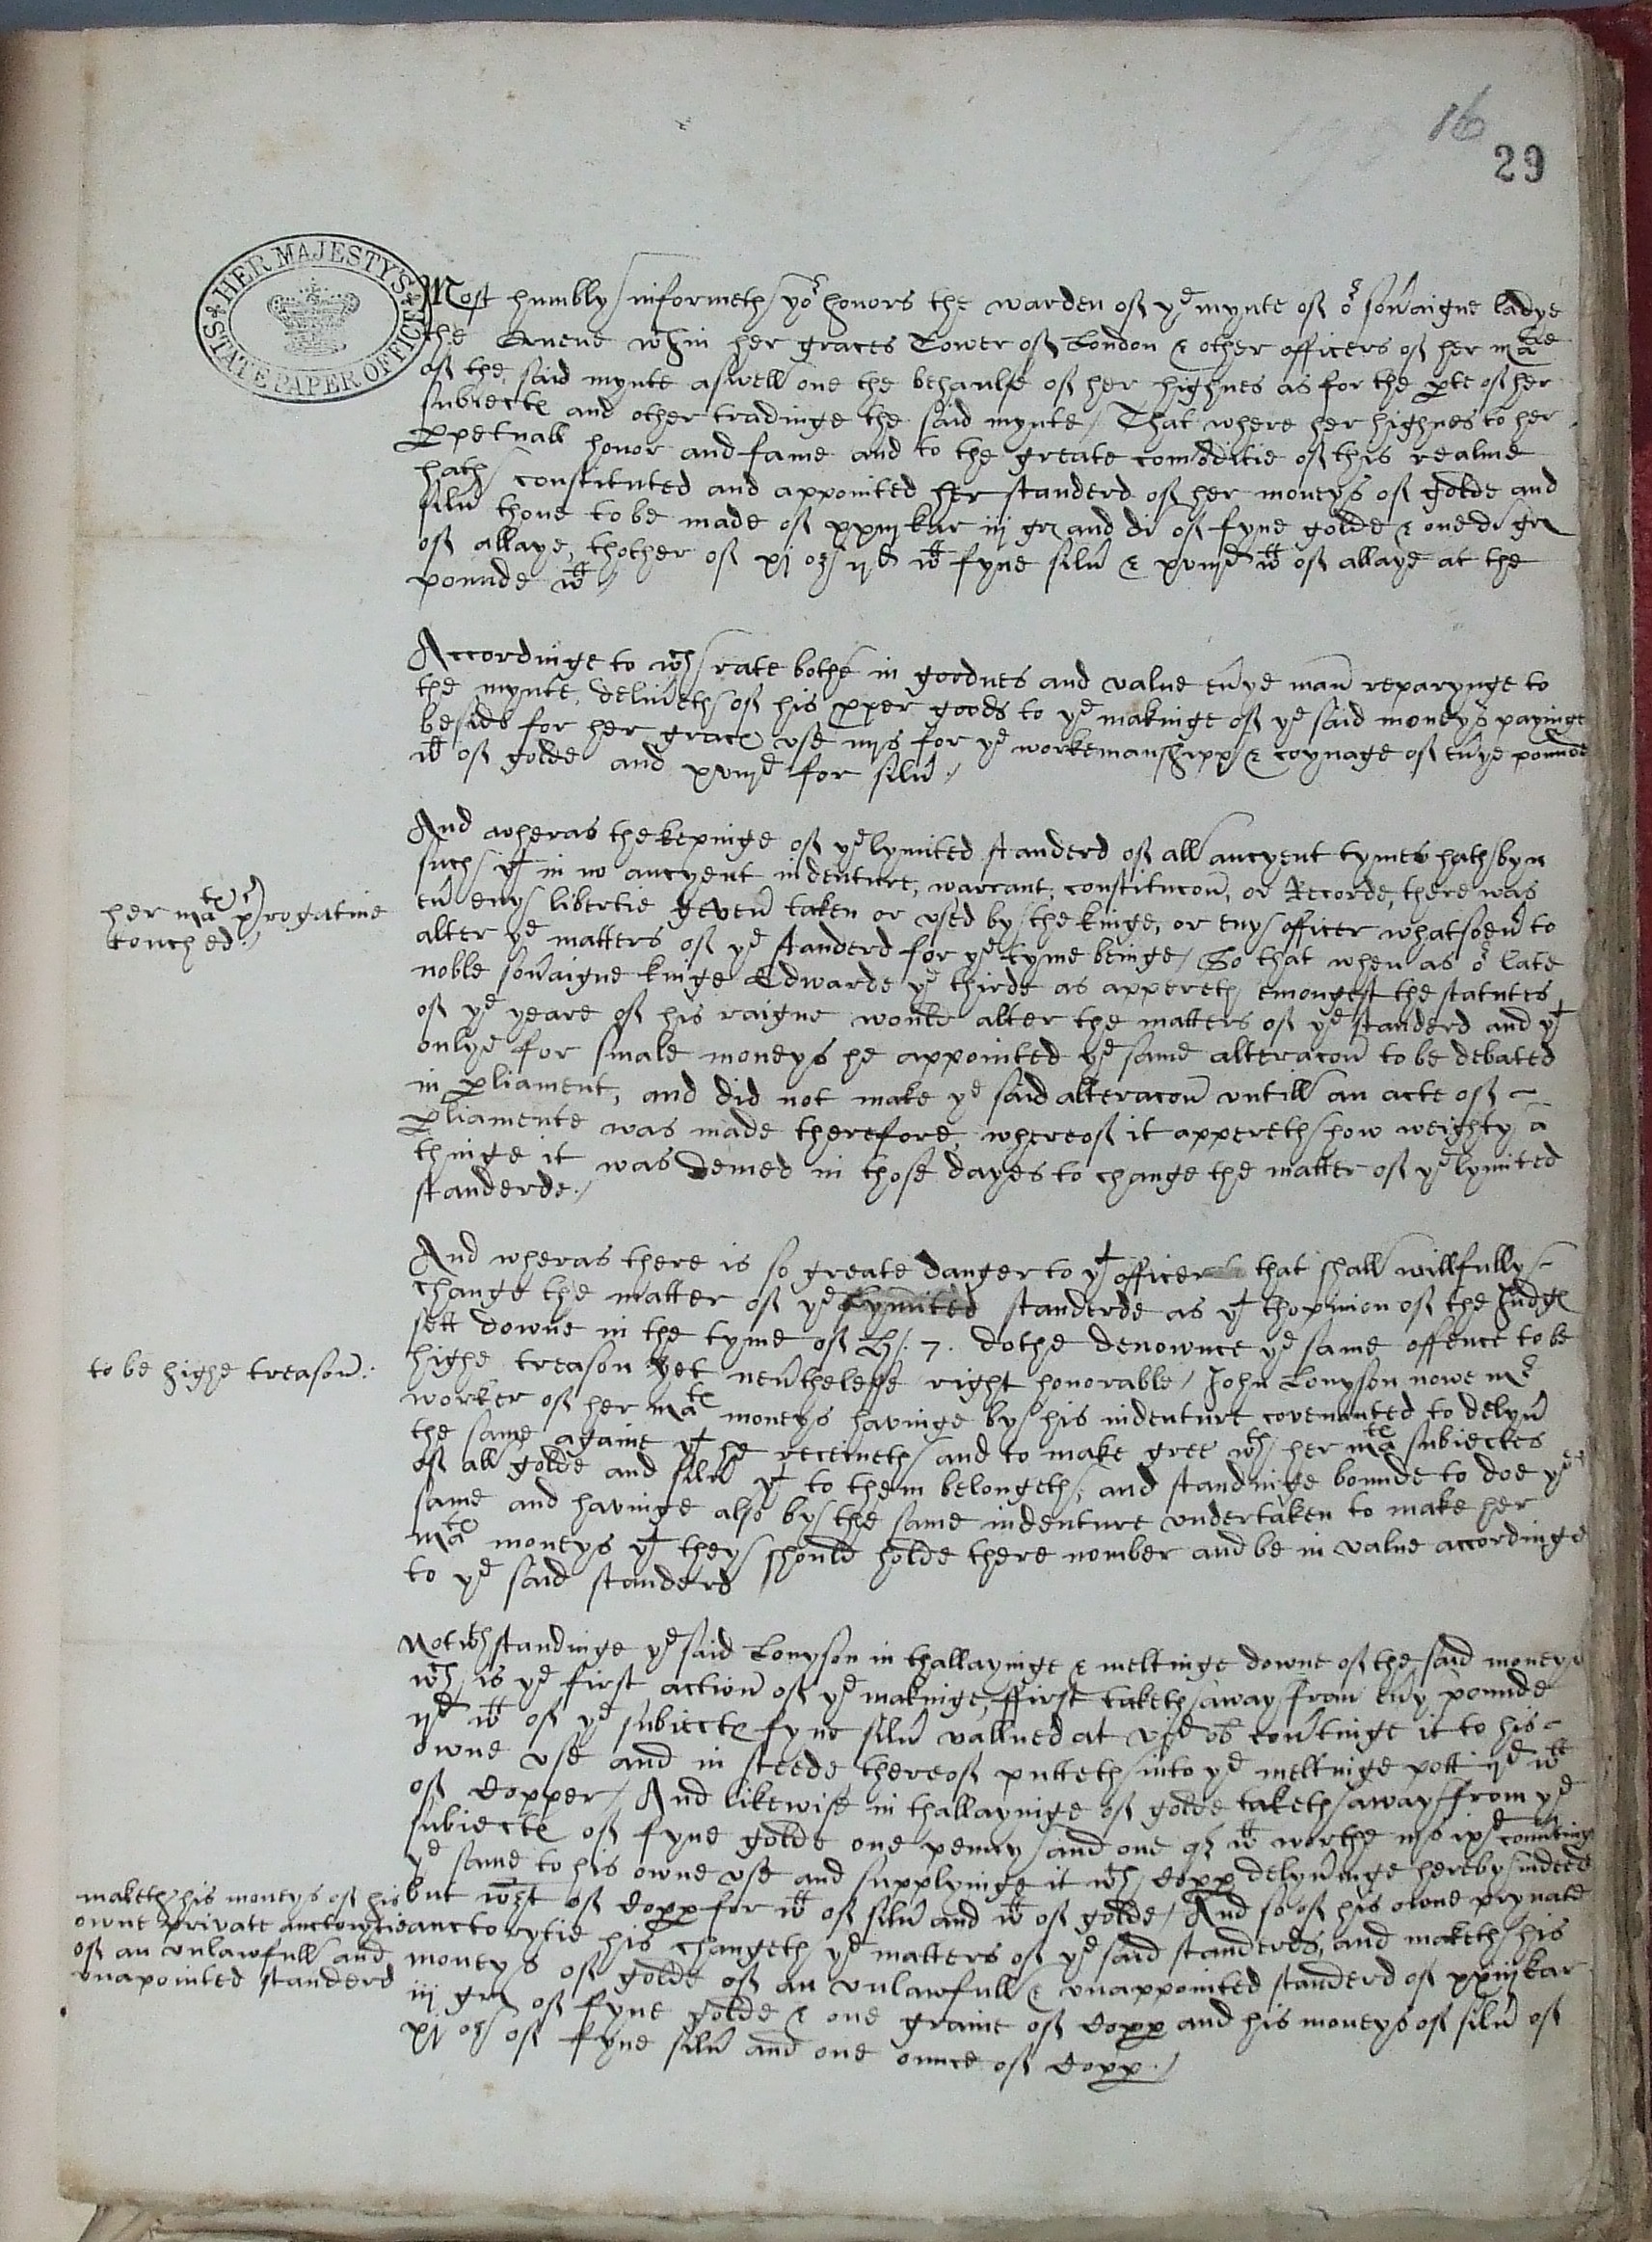 16
29
HER MAJESTY'S STATE PAPER OFFICE
Most humbly informeth yor honors the warden of ye mynte of or sov'aigne ladye
the Quene wthin her graces Tower of London & other officers of her matie
of the said mynte aswell one the behaulfe of her highnes as for the pte of her
subiectℯ and other tradinge the said mynte / That where her highnes to her
ppetuall honor and fame and to the greate comoditie of this realme
hath constituted and appointed her standerd of her moneys of golde and
silv' thone to be made of xxiij kar iij gr and di of fyne golde & one di gr
of allaye, thother of xj oz ijd wt fyne silv' & xviijd wt of allaye at the
pounde wt /
Accordinge to wch rate bothe in goodnes and value ev'ye man reparynge to
the mynte, deliv'eth of his pper goods to ye makinge of ye said moneys payinge
besids for her gracℯ use iiijs for ye workemanshipp & coynage of ev'ye pounde
wt of golde and xviijd for silv' /
And wheras the kepinge of ye lymited standerd of all ancyent tymes hath byn
such yt in no ancyent indenture, warrant, constitucon, or Recorde, there was
ev' eny libertie geven taken or used by the kinge, or eny officer whatsoev' to
alter ye matters of ye standerd for ye tyme beinge / So that when as or late
noble sov'aigne kinge Edwarde ye thirde as appereth emongest the statutes
of ye yeare of his raigne would alter the matters of ye standerd and yt
onlye for smale moneys he appointed ye same alteracon to be debated
in pliament, and did not make ye said alteracon untill an acte of
pliamente was made therefore, whereof it appereth how weighty a
thinge it was demed in those dayes to change the matter of ye lymited
standerde /
her matℯ prrogative
touched /
And wheras there is so greate danger to yt officer that shall willfully
change the matter of ye lymited standerde as yt thopinion of the Judgℯ
sett downe in the tyme of H. 7. dothe denownce ye same offence to be
highe treason yet nev'thelesse right honorable / John Lonyson nowe mr
worker of her matℯ moneys havinge by his indenture covenanted to delyv'
the same againe yt he receiveth and to make gree wth her matℯ subiectes
of all golde and silv' yt to them belongeth, and standinge bounde to doe ye
same and havinge also by the same indenture undertaken to make her
matℯ moneys yt they should holde there nomber and be in value accordinge
to ye said standerd
to be highe treason :
Notwthstandinge ye said Lonyson in thallayinge & meltinge downe of the said moneys
wch is ye first action of ye makinge, ffirst taketh away from ev'y pounde
ijd wt of ye subiectℯ fyne silv' vallued at vjd ob conv'tinge it to his
owne use and in steede thereof putteth into ye meltinge pott ijd wt
of Copper / And likewise in thallayinge of golde taketh away from ye
subiectℯ of fyne golde one penny and one wt worthe conv'tinge
ye same to his owne use and supplyinge it wth Copp delyv'inge hereby indeed
but of Copp for wt of silv' and wt of golde / And so of his owne pryvate
auctorytie his changeth ye matters of ye said standerds, and maketh his
moneys of golde of an unlawfull & unappointed standerd of xxiij kar
iij gr of fyne golde & one graine of Copp and his moneys of silv' of
xj oz of fyne silv' and one ounce of Copp /
maketh his moneys of his
owne private auctorytie
of an unlawfull and
unapointed standerd